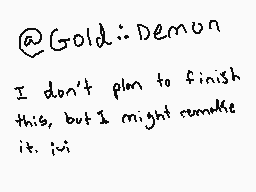 @Gold∴Demon
I don't plan to finish
this, but I might remake
it. ;u;